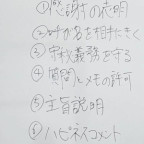 ①感謝の表明
②対が名を相手にきく
③守秘義務を守る
④質問とメモの許可
⑤主旨説明
⑥ハピネスコメント